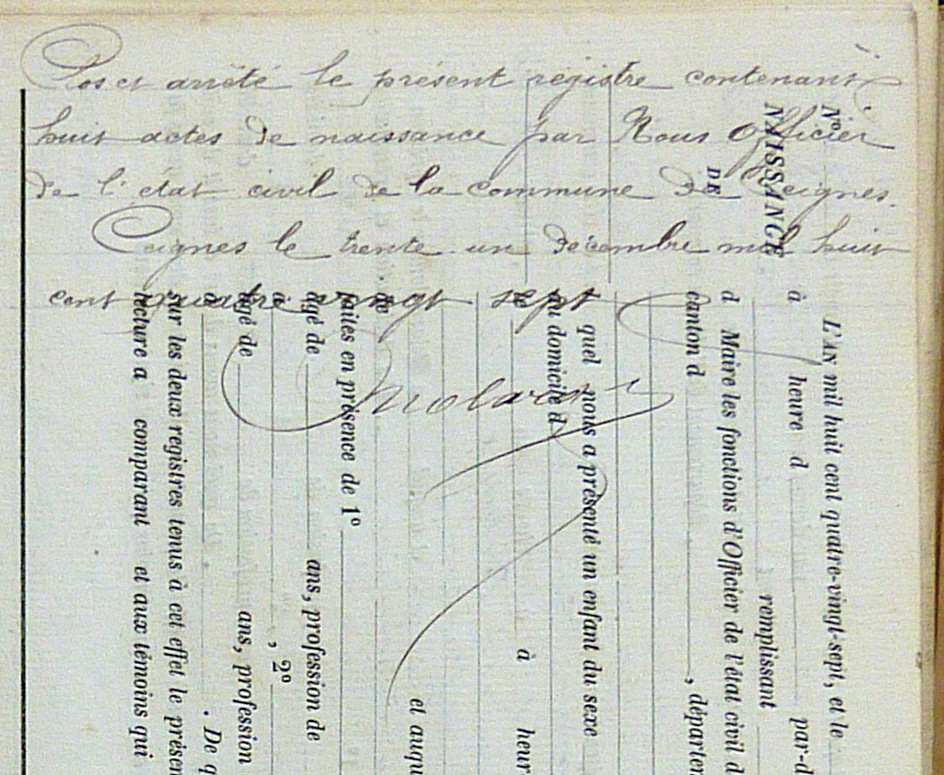 Clos et arrêté le présent registre contenant
huit actes de naissance par Nous Officier
de l'état civil de la commune de Ceignes.
Ceignes le trente un décembre mil huit
cent quatre vingt sept
N°
NAISSANCE
DE
L'AN mil huit cent quatre-vingt-sept, et le
à heure d par-d
remplissant
d Maire les fonctions d'Officier de l'état civil d
canton d , départem
quel nous a présenté un enfant du sexe
au domicile d
à heur
et auqu
faites en présence de 1°
âgé de ans, profession de
, 2°
âgé de ans, profession
. De q
sur les deux registres tenus à cet effet le présen
lecture a comparant et aux témoins qui